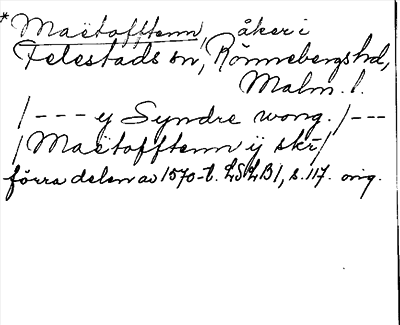 *Maëtofftenn, åker i
Felestads sn, Rönnebergs hd,
Malm. l.
/--- ÿ Syndre wong. /---
/Maëtofftenn ÿ skr̄/
förra delen av 1570-t. LSLB1, s. 117. orig.